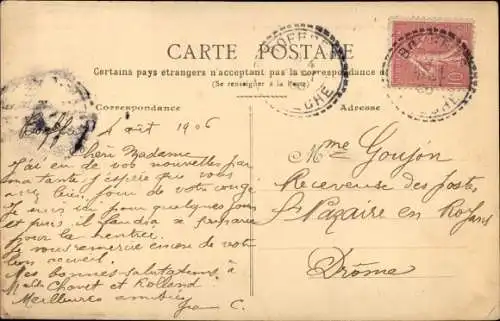 CARTE POSTALE
Certains pays étrangers n'acceptant pas la correspondance d
(Se renseigner à la Poste)
Correspondance
Adresse
Août 1906
Chère Madame
J'ai eu de vos nouvelles par
ma tante. J'espère que vous
avez bien joui de votre congé
Je suis ici pour quelques jours
et puis il faudra se préparer
pour la rentrée.
Je vous remercie encore de votre
bon accueil.
Mes bonnes salutations à
Chovet et Rolland
Meilleures amitiés
C.
Mme Goujon
Receveuse des postes
St Nazaire en Royans
Drôme
10